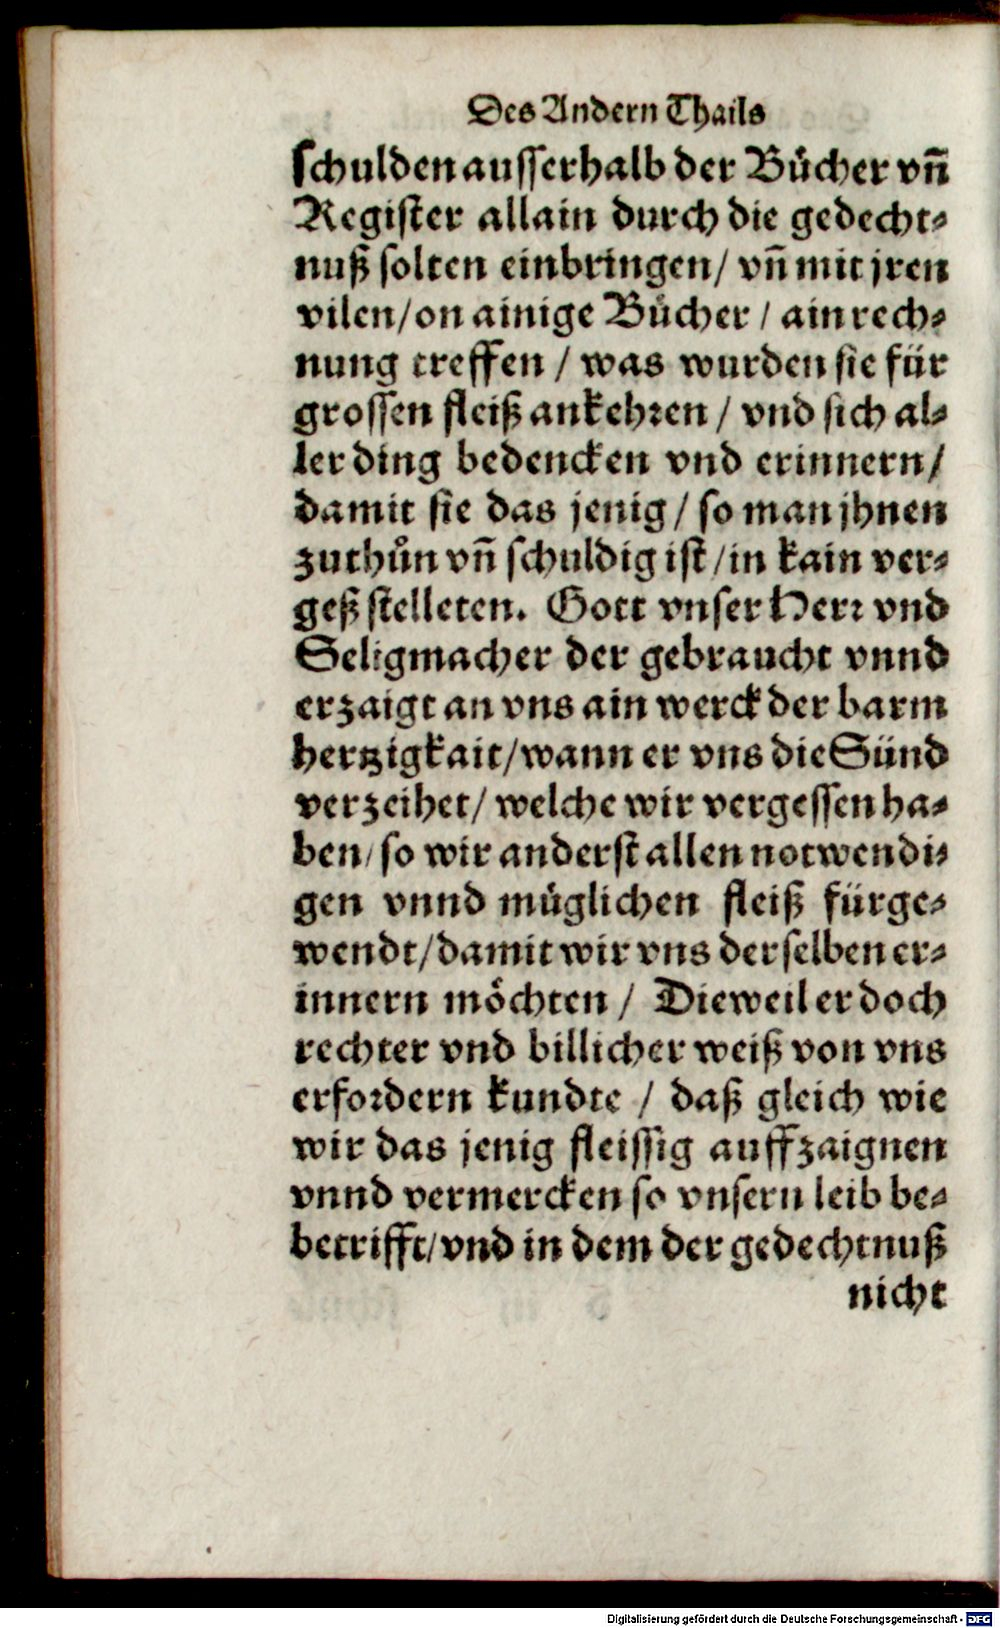 Des Andern Thails
schulden ausserhalb der Bücher vn̄
Register allain durch die gedecht-
nuß solten einbringen/ vn̄ mit jren
vilen/ on ainige Bücher / ain rech-
nung treffen / was wurden sie für
grossen fleiß ankehren / vnd sich al-
ler ding bedencken vnd erinnern/
damit sie das jenig / so man jhnen
zuthůn vn̄ schuldig ist / in kain ver-
geß stelleten. Gott vnser Herr vnd
Seligmacher der gebraucht vnnd
erzaigt an vns ain werck der barm
hertzigkait/ wann er vns die Sünd
verzeihet/ welche wir vergessen ha-
ben/ so wir anderst allen notwendi-
gen vnnd müglichen fleiß fürge-
wendt/ damit wir vns derselben er-
innern möchten / Dieweil er doch
rechter vnd billicher weiß von vns
erfordern kundte / daß gleich wie
wir das jenig fleissig auffzaignen
vnnd vermercken so vnsern leib be-
betrifft/ vnd in dem der gedechtnuß
nicht
Digitalisierung gefördert durch die Deutsche Forschungsgemeinschaft - DFG